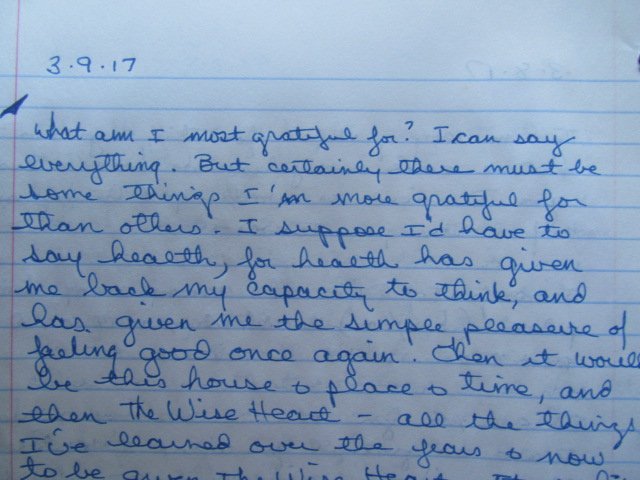 3.9.17
What am I most grateful for? I can say
everything. But certainly there must be
some things I'm more grateful for
than others. I suppose I'd have to
say health, for health has given
me back my capacity to think, and
has given me the simple pleasure of
feeling good once again. Then it would
be this house & place & time, and
then The Wise Heart - all the things
I've learned over the years & now
to be given The Wise Heart.